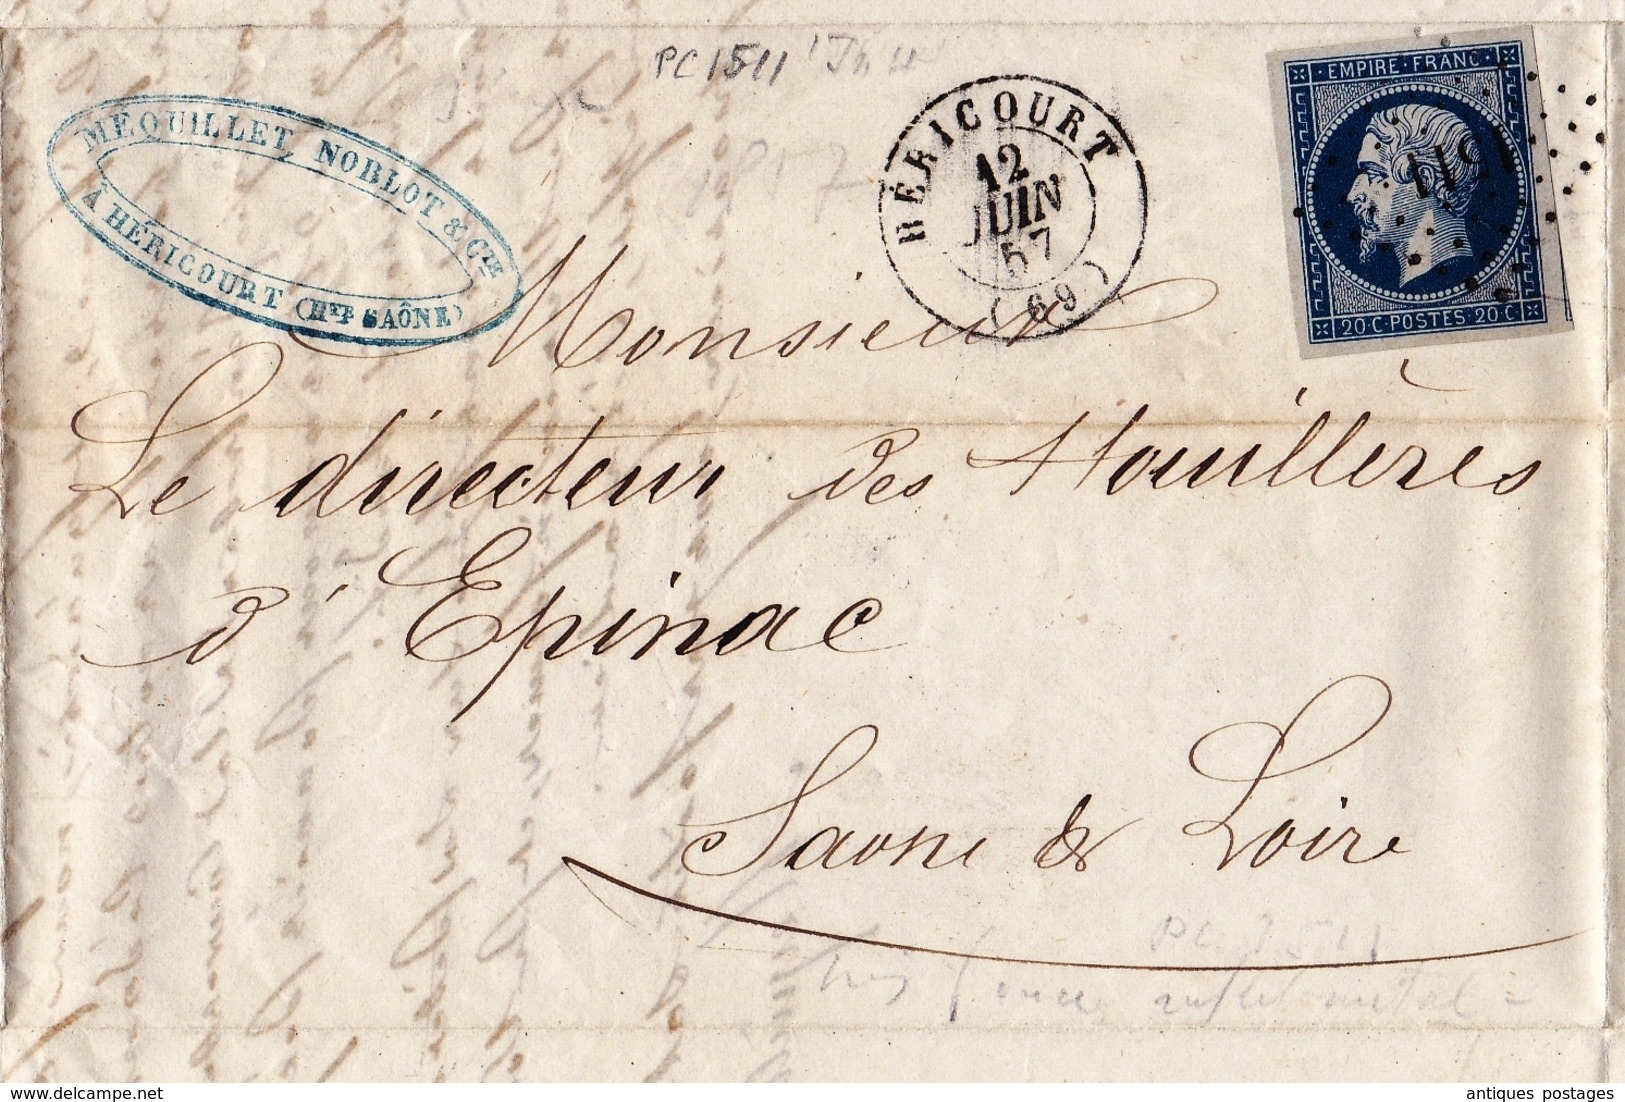 PC 1511
MÉQUILLET NOBLOT & CIE
À HÉRICOURT (HTE SAÔNE)
HÉRICOURT
12
JUIN
57
(69)
EMPIRE · FRANC ·
1511
20 · C · POSTES · 20 · C
Monsieur
Le directeur des Houillères
d'Epinac
Saone & Loire
PC 1511
delcampe.net
antiques postages